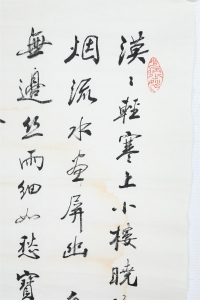 漠〻輕寒上小樓曉
烟流水畫屏幽
無邊丝雨細如愁寶